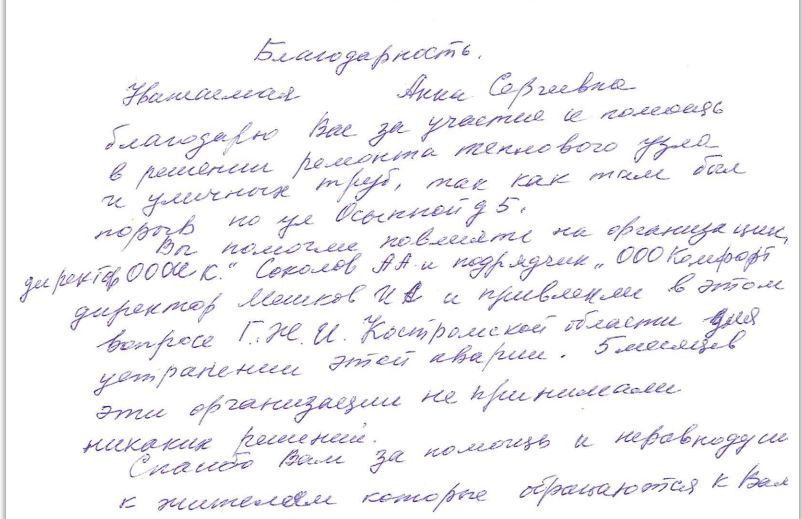 Благодарность.
Уважаемая Анна Сергеевна
благодарю Вас за участие и помощь
в решении ремонта теплового узла
и уличных труб, так как там был
порыв по ул Осыпной д 5.
Вы помогли повлиять на организации,
директор ООО К." Соколов АА и подрядчик „ООО Комфорт
директор Мешков И А и привлекли в этом
вопросе Г.Ж.И. Костромской области для
устранении этой аварии. 5 месяцев
эти организации не принимали
никаких решений.
Спасибо Вам за помощь и неравнодуши
к жителям которые обращаются к Вам